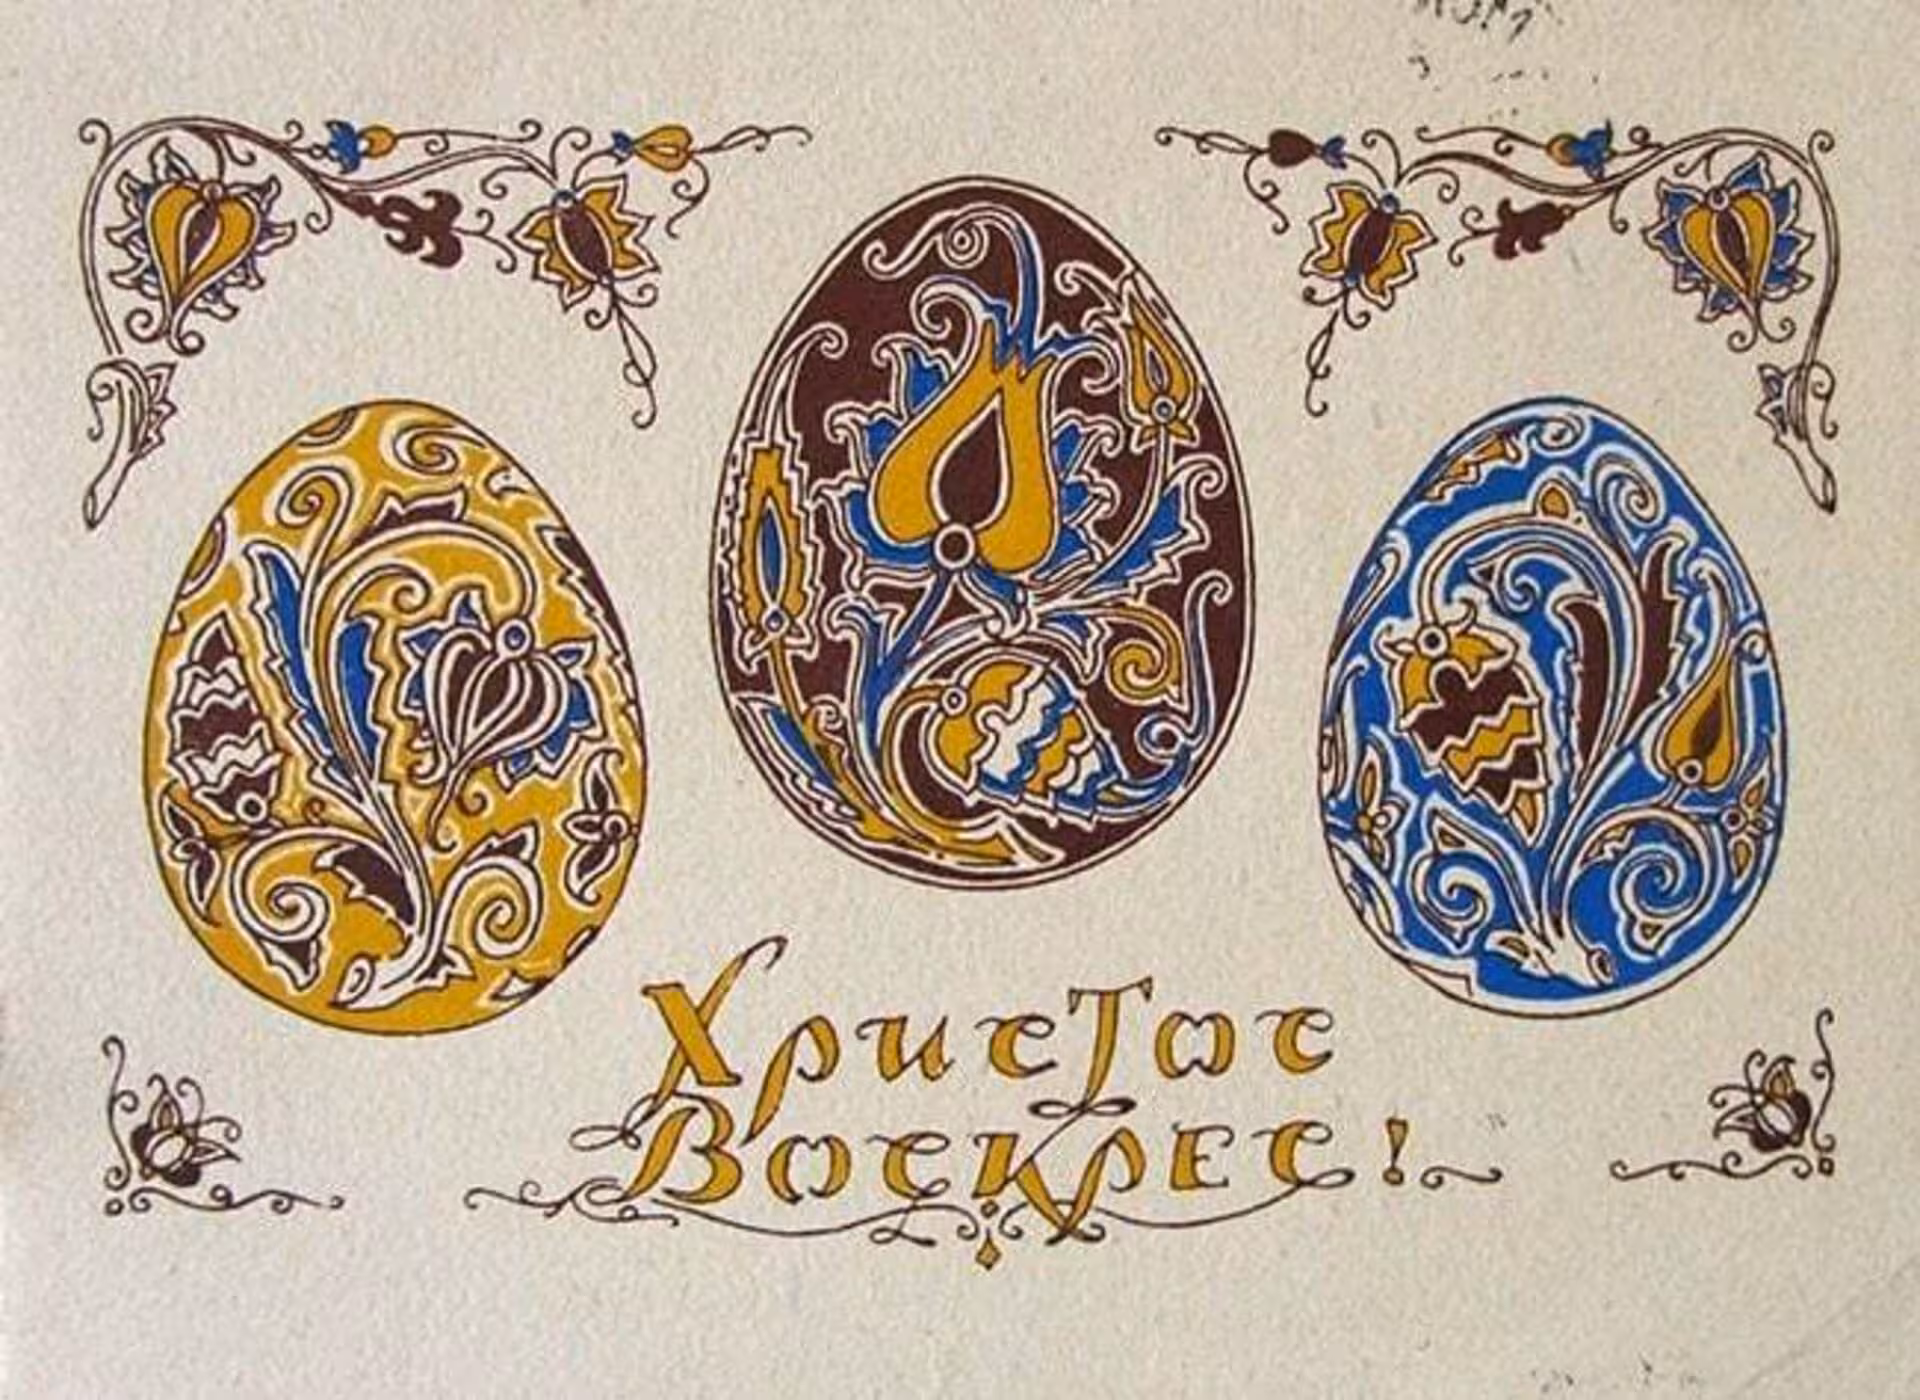 Христос
Воскрес!